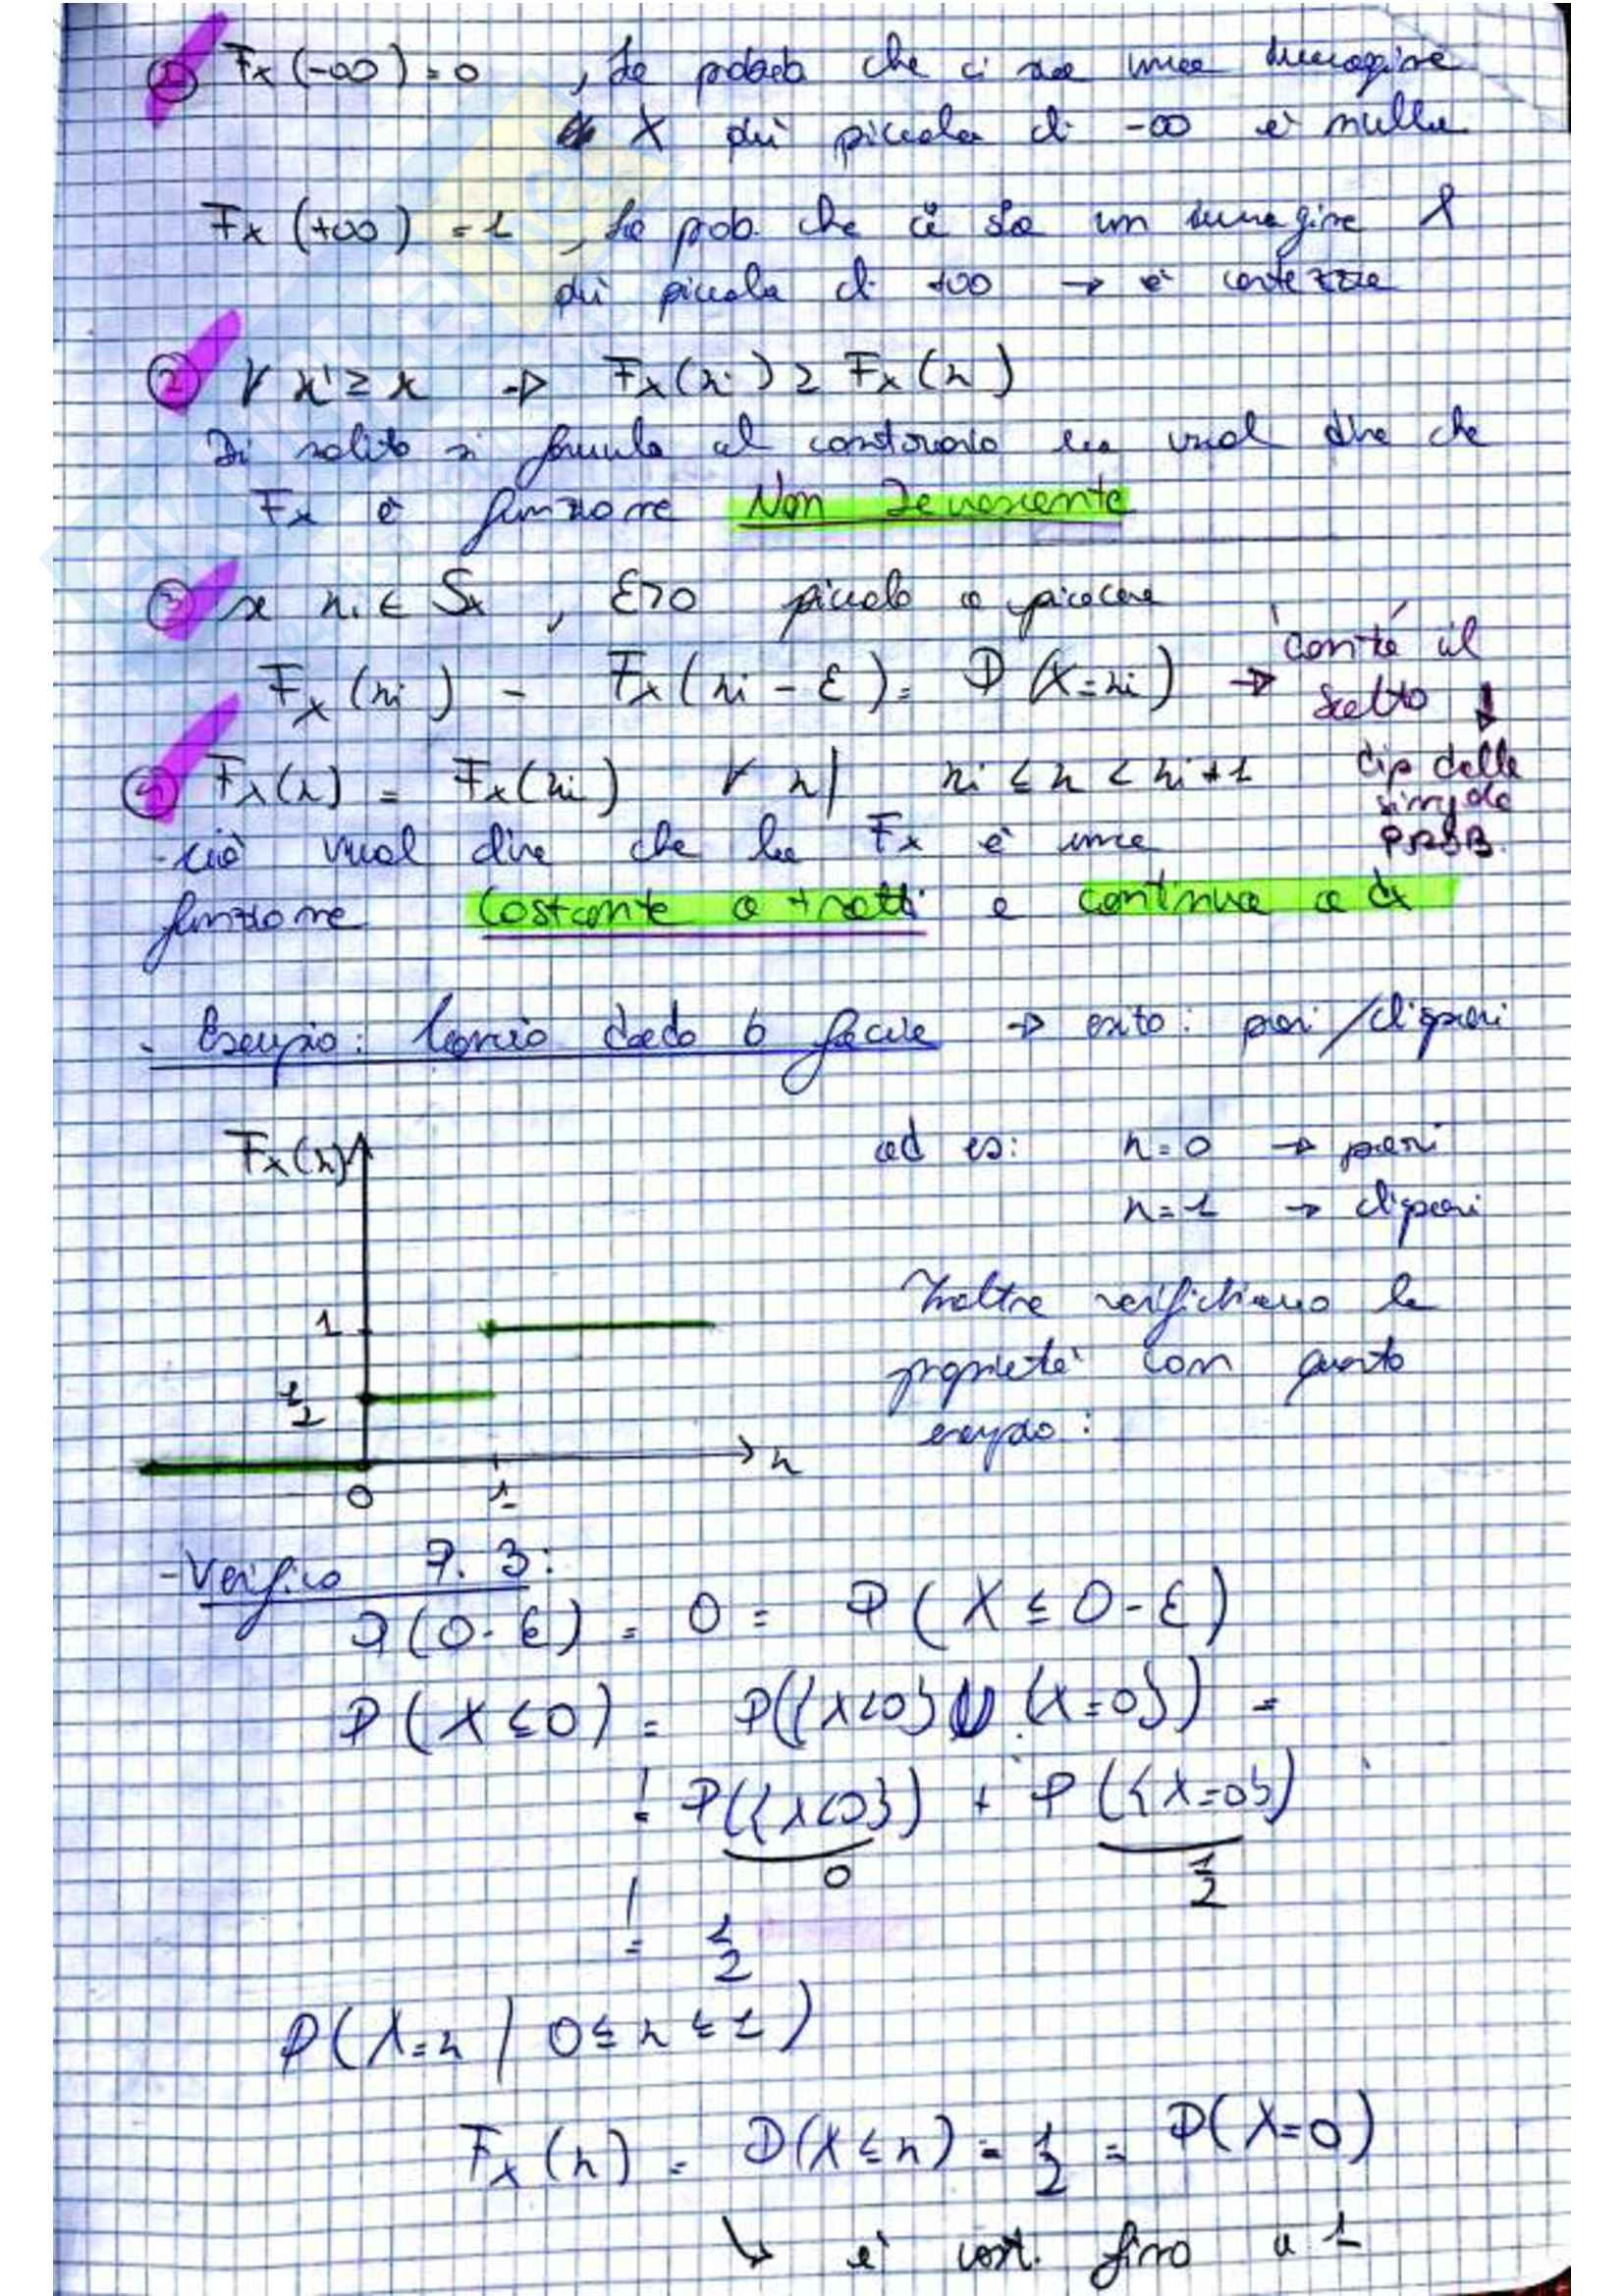 ① Fx(-∞) = 0 , la probab che ci sia una immagine
X più piccola di -∞ è nulla
Fx(+∞) = 1 , la prob. che ci sia un immagine X
più piccola di +∞ → è certezza
② ∀ x' ≥ x → Fx(x') ≥ Fx(x)
Di solito si formula al contrario ma vuol dire che
Fx è funzione Non Decrescente
③ se xi ∈ Sx , ε>0 piccolo a piacere
Fx(xi) - Fx(xi - ε) = P(X=xi) → com'è il
salto ↓
dip delle
singole
PROB.
④ Fx(x) = Fx(xi) ∀ x | xi ≤ x < xi+1
ciò vuol dire che la Fx è una
funzione costante a tratti e continua a dx
- Esempio: lancio dado 6 facce → esito: pari/dispari
Fx(x)
1
1/2
0 1 x
ad es: x=0 → pari
x=1 → dispari
Inoltre verifichiamo le
proprietà con questo
esempio:
- Verifico P. 3:
P(0-ε) = 0 = P(X ≤ 0-ε)
P(X ≤ 0) = P({X<0} U {X=0}) =
= P({X<0}) + P({X=0})
0 1/2
= 1/2
P(X=x | 0 ≤ x ≤ 1)
Fx(x) = P(X ≤ x) = 1/2 = P(X=0)
↳ è cost. fino a 1